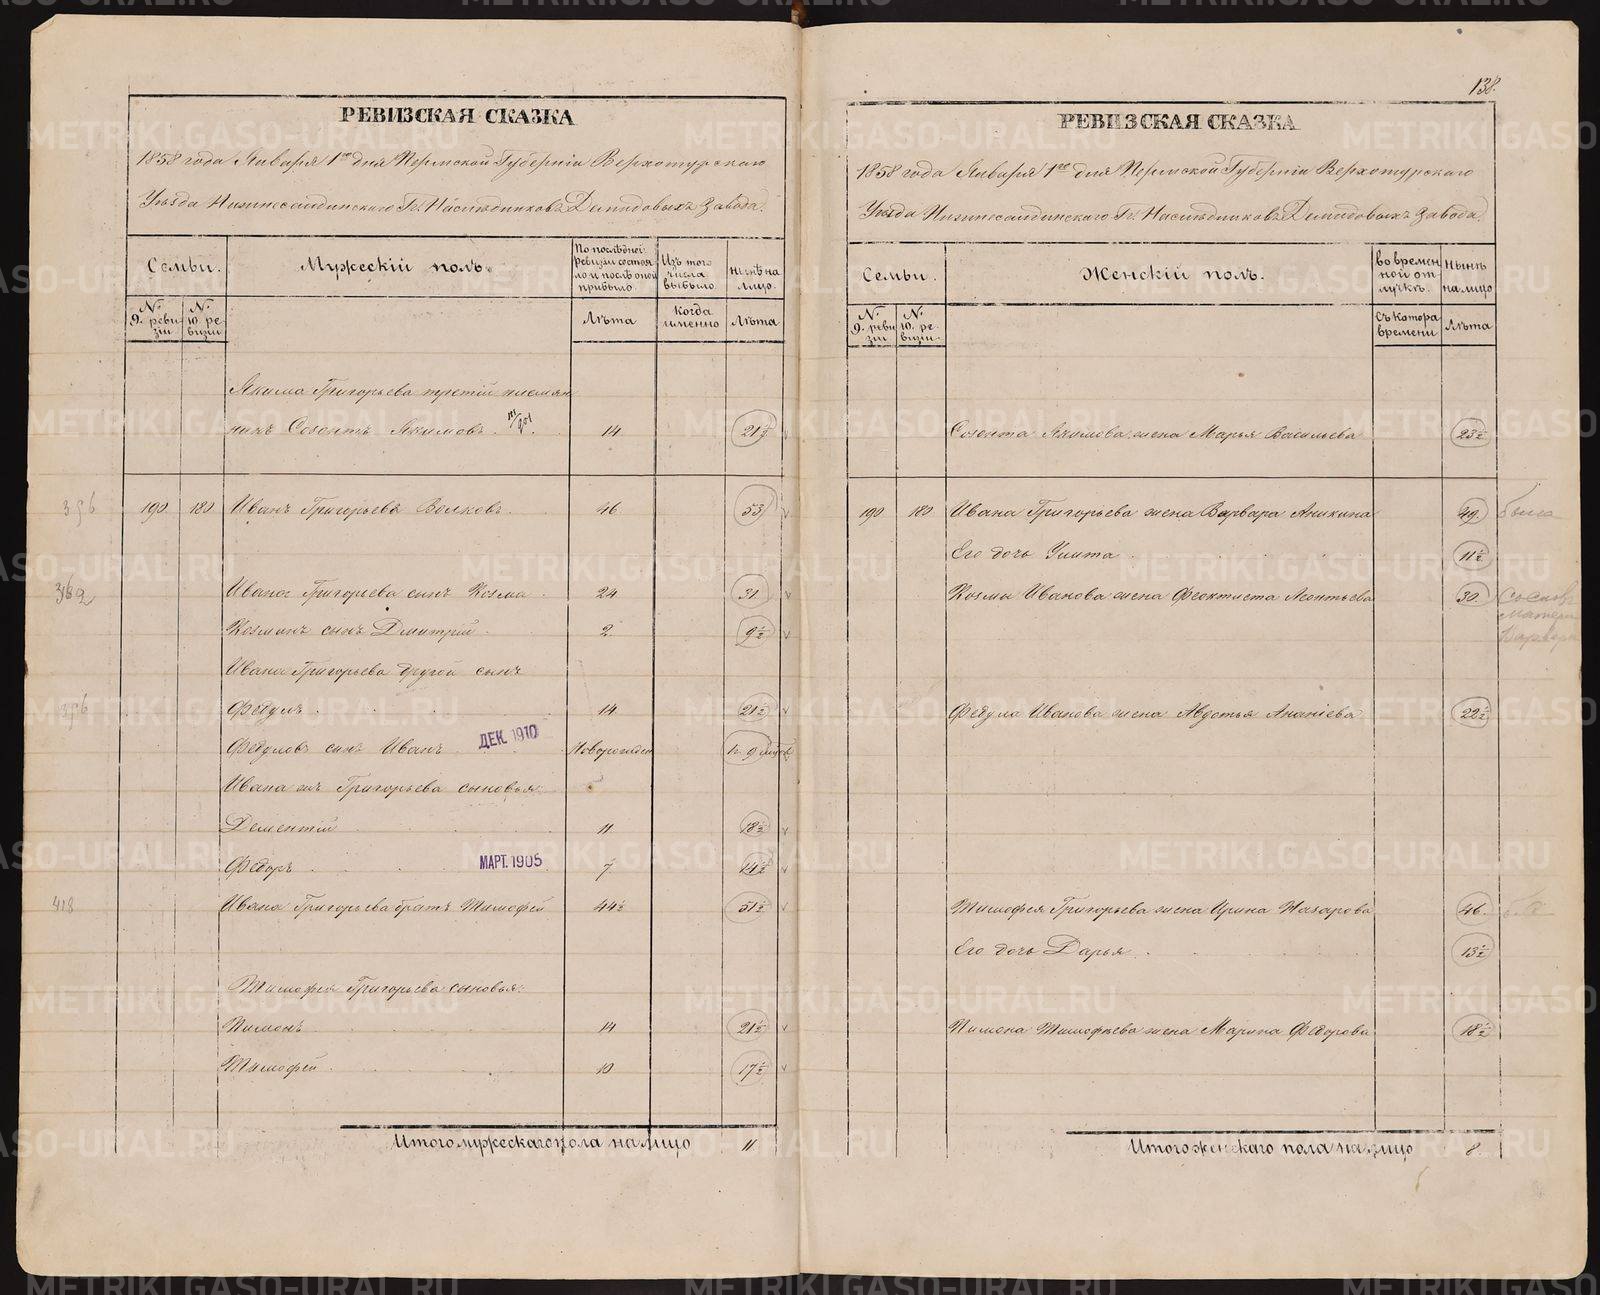 138.
РЕВИЗСКАЯ СКАЗКА
1858 года Января 1го дня Пермской Губернiи Верхотурскаго
Уѣзда Нижнесалдинскаго Гг. Наслѣдниковъ Демидовыхъ Завода.
Семьи.
Мужескiй полъ.
По послѣдней ревизiи состояло и послѣ оной прибыло.
Изъ того числа выбыло.
Нынѣ на лицо.
№ 9. ревизiи
№ 10. ревизiи
Лѣта
Когда именно
Лѣта
Якима Григорьева третiй племян
никъ Созонтъ Якимовъ. 14 21½
356 190 180 Иванъ Григорьевъ Волковъ. 46 53
362 Ивана Григорьева сынъ Козма 24 31
Козминъ сынъ Дмитрiй 2 9½
Ивана Григорьева другой сынъ
356 Ѳедулъ 14 21½
Ѳедуловъ сынъ Иванъ ДЕК. 1910 Новорожден
Ивана жъ Григорьева сыновья:
Дементiй 11 18½
Ѳедоръ МАРТ. 1905 7 14½
418 Ивана Григорьева братъ Тимофей 44½ 51½
Тимофея Григорьева сыновья:
Пименъ 14 21½
Тимофей 10 17½
Итого мужескаго пола на лицо 11
РЕВИЗСКАЯ СКАЗКА
1858 года Января 1го дня Пермской Губернiи Верхотурскаго
Уѣзда Нижнесалдинскаго Гг. Наслѣдниковъ Демидовыхъ Завода.
Семьи.
Женскiй полъ.
Во временной отлучкѣ.
Нынѣ на лицо
№ 9. ревизiи
№ 10. ревизiи.
Съ котора времени
Лѣта
Созонта Якимова жена Марья Васильева 23½
190 180 Ивана Григорьева жена Варвара Аникина 49
Его дочь Улита 11½
Козмы Иванова жена Феоктиста Леонтьева 30
Ѳедула Иванова жена Авдотья Ананiева 22½
Тимофея Григорьева жена Ирина Назарова 46
Его дочь Дарья 13½
Пимена Тимофеева жена Марина Ѳедорова 18½
Итого женскаго пола на лицо 8
METRIKI.GASO-URAL.RU